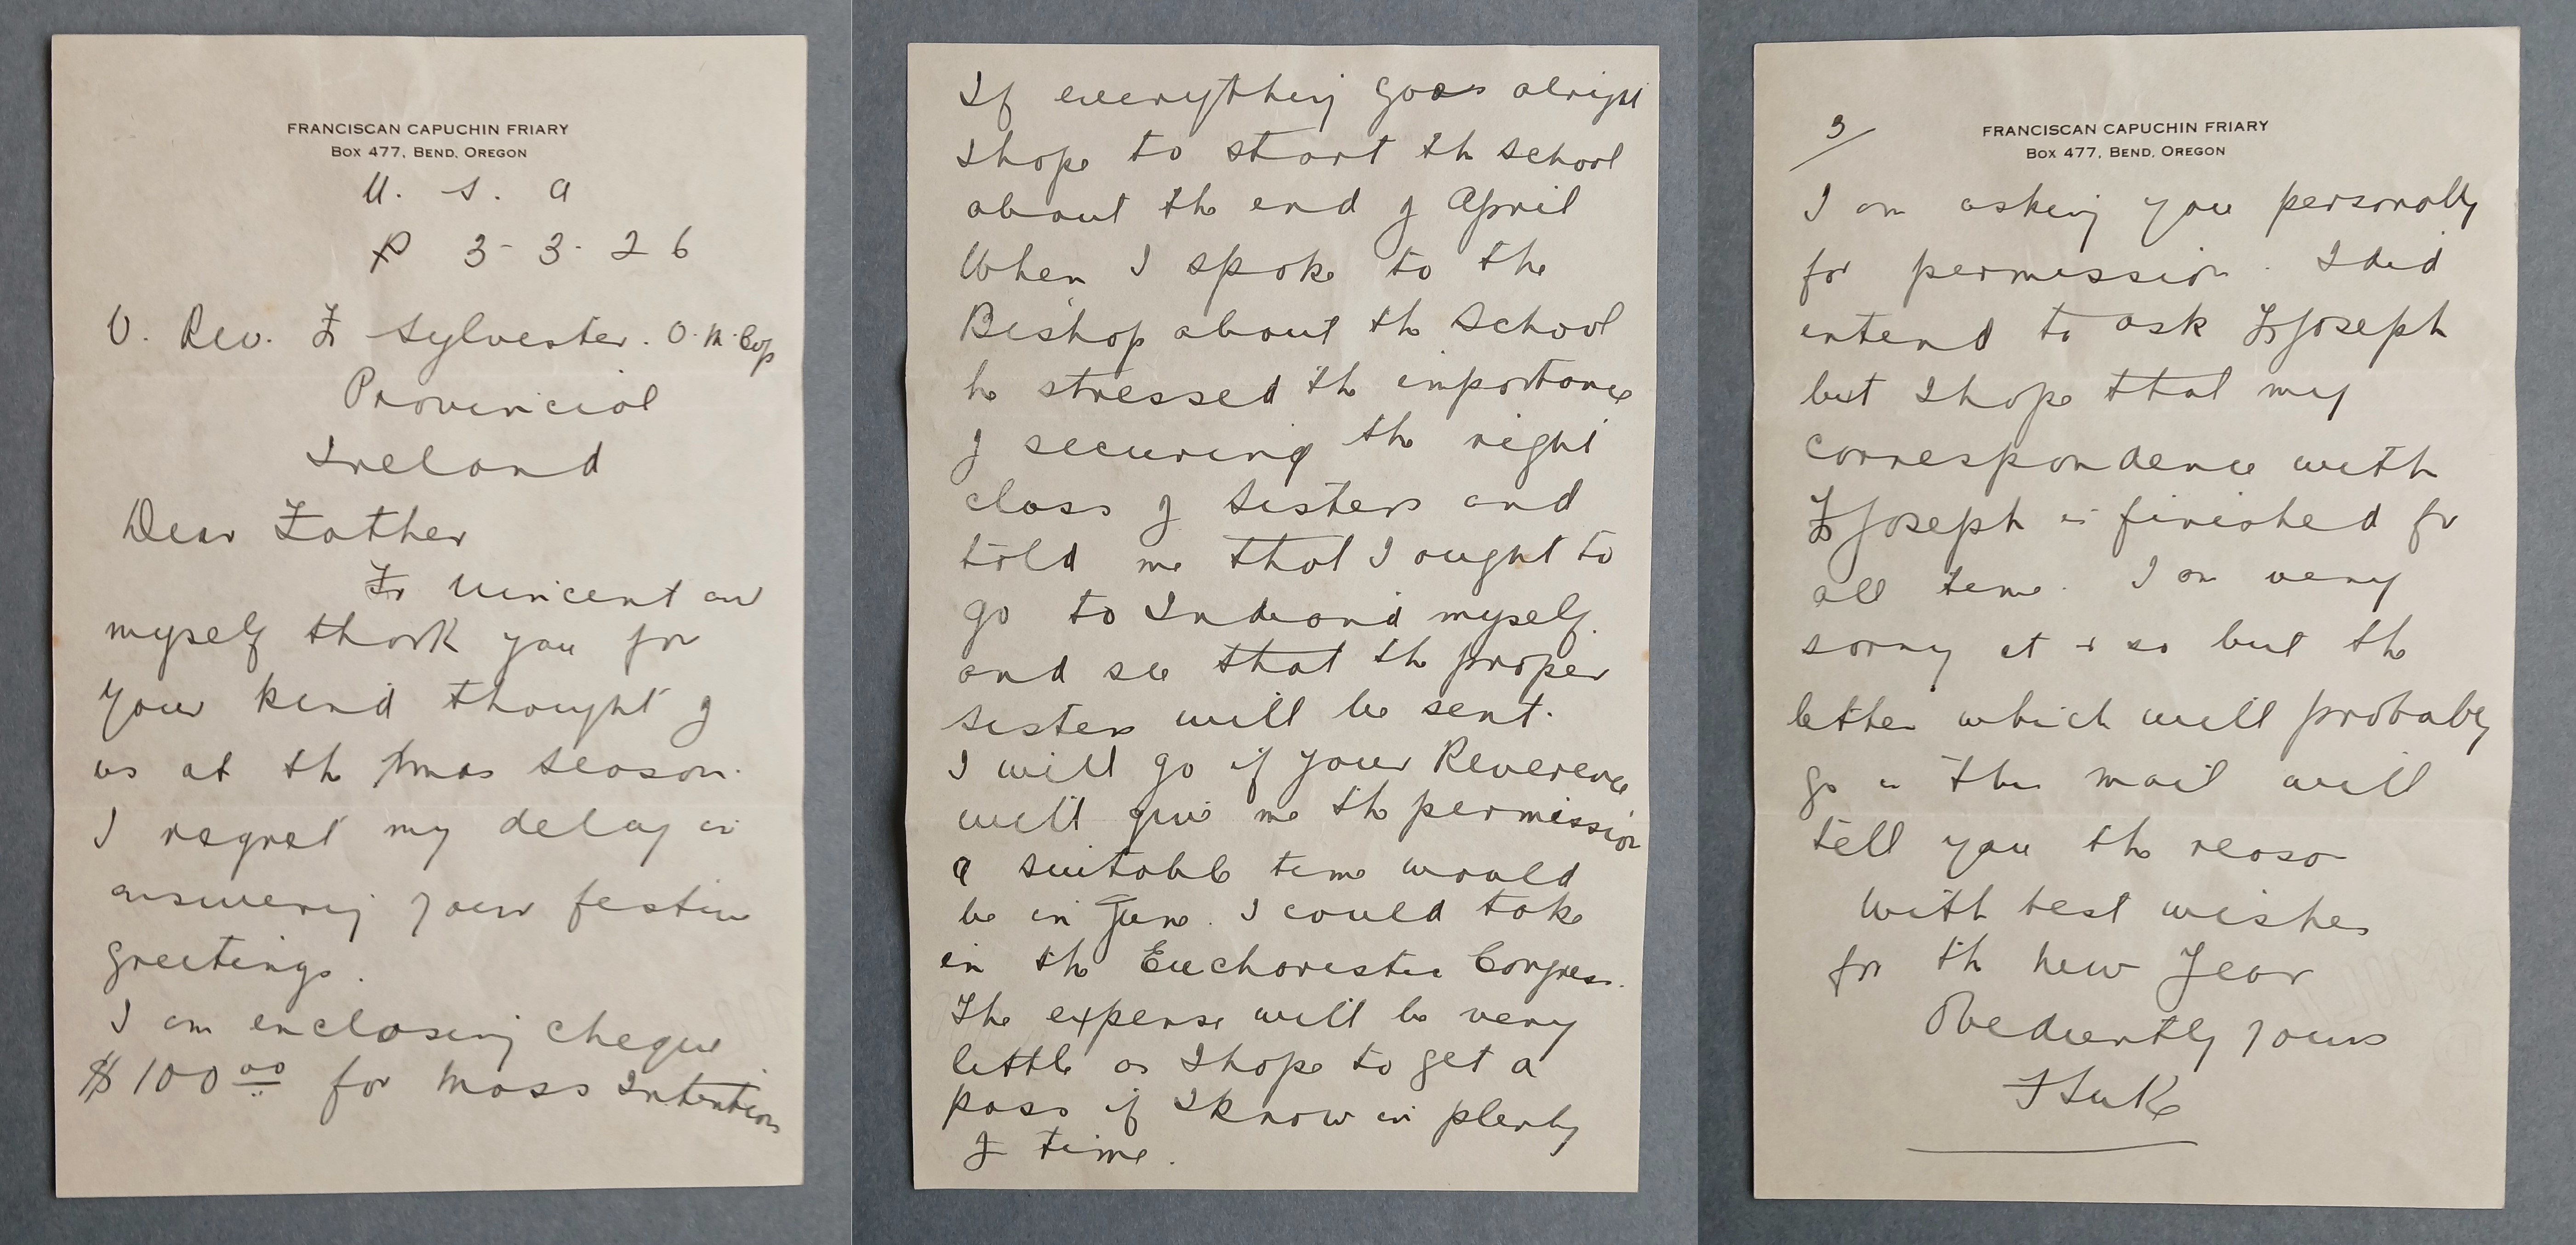 FRANCISCAN CAPUCHIN FRIARY
BOX 477, BEND, OREGON
U. S. A
3-3-26
V. Rev. Fr Sylvester. O.M.Cap
Provincial
Ireland
Dear Father
Fr Vincent and
myself thank you for
your kind thought of
us at the Xmas season.
I regret my delay in
answering your festive
greetings.
I am enclosing cheque
$100.00 for Mass Intentions
If everything goes alright
I hope to start the school
about the end of April
When I spoke to the
Bishop about the school
he stressed the importance
of securing the right
class of sisters and
told me that I ought to
go to Indiand myself.
and see that the proper
sisters will be sent.
I will go if your Reverence
will give me the permission
a suitable time would
be in June. I could take
in the Eucharistic Congress.
The expense will be very
little as I hope to get a
pass if I know in plenty
of time.
3/
FRANCISCAN CAPUCHIN FRIARY
BOX 477, BEND, OREGON
I am asking you personally
for permission. I did
intend to ask Fr Joseph
but I hope that my
correspondence with
Fr Joseph is finished for
all time. I am very
sorry it is so but the
letter which will probably
go in this mail will
tell you the reason
With best wishes
for the New Year
Obediently yours
F Luke